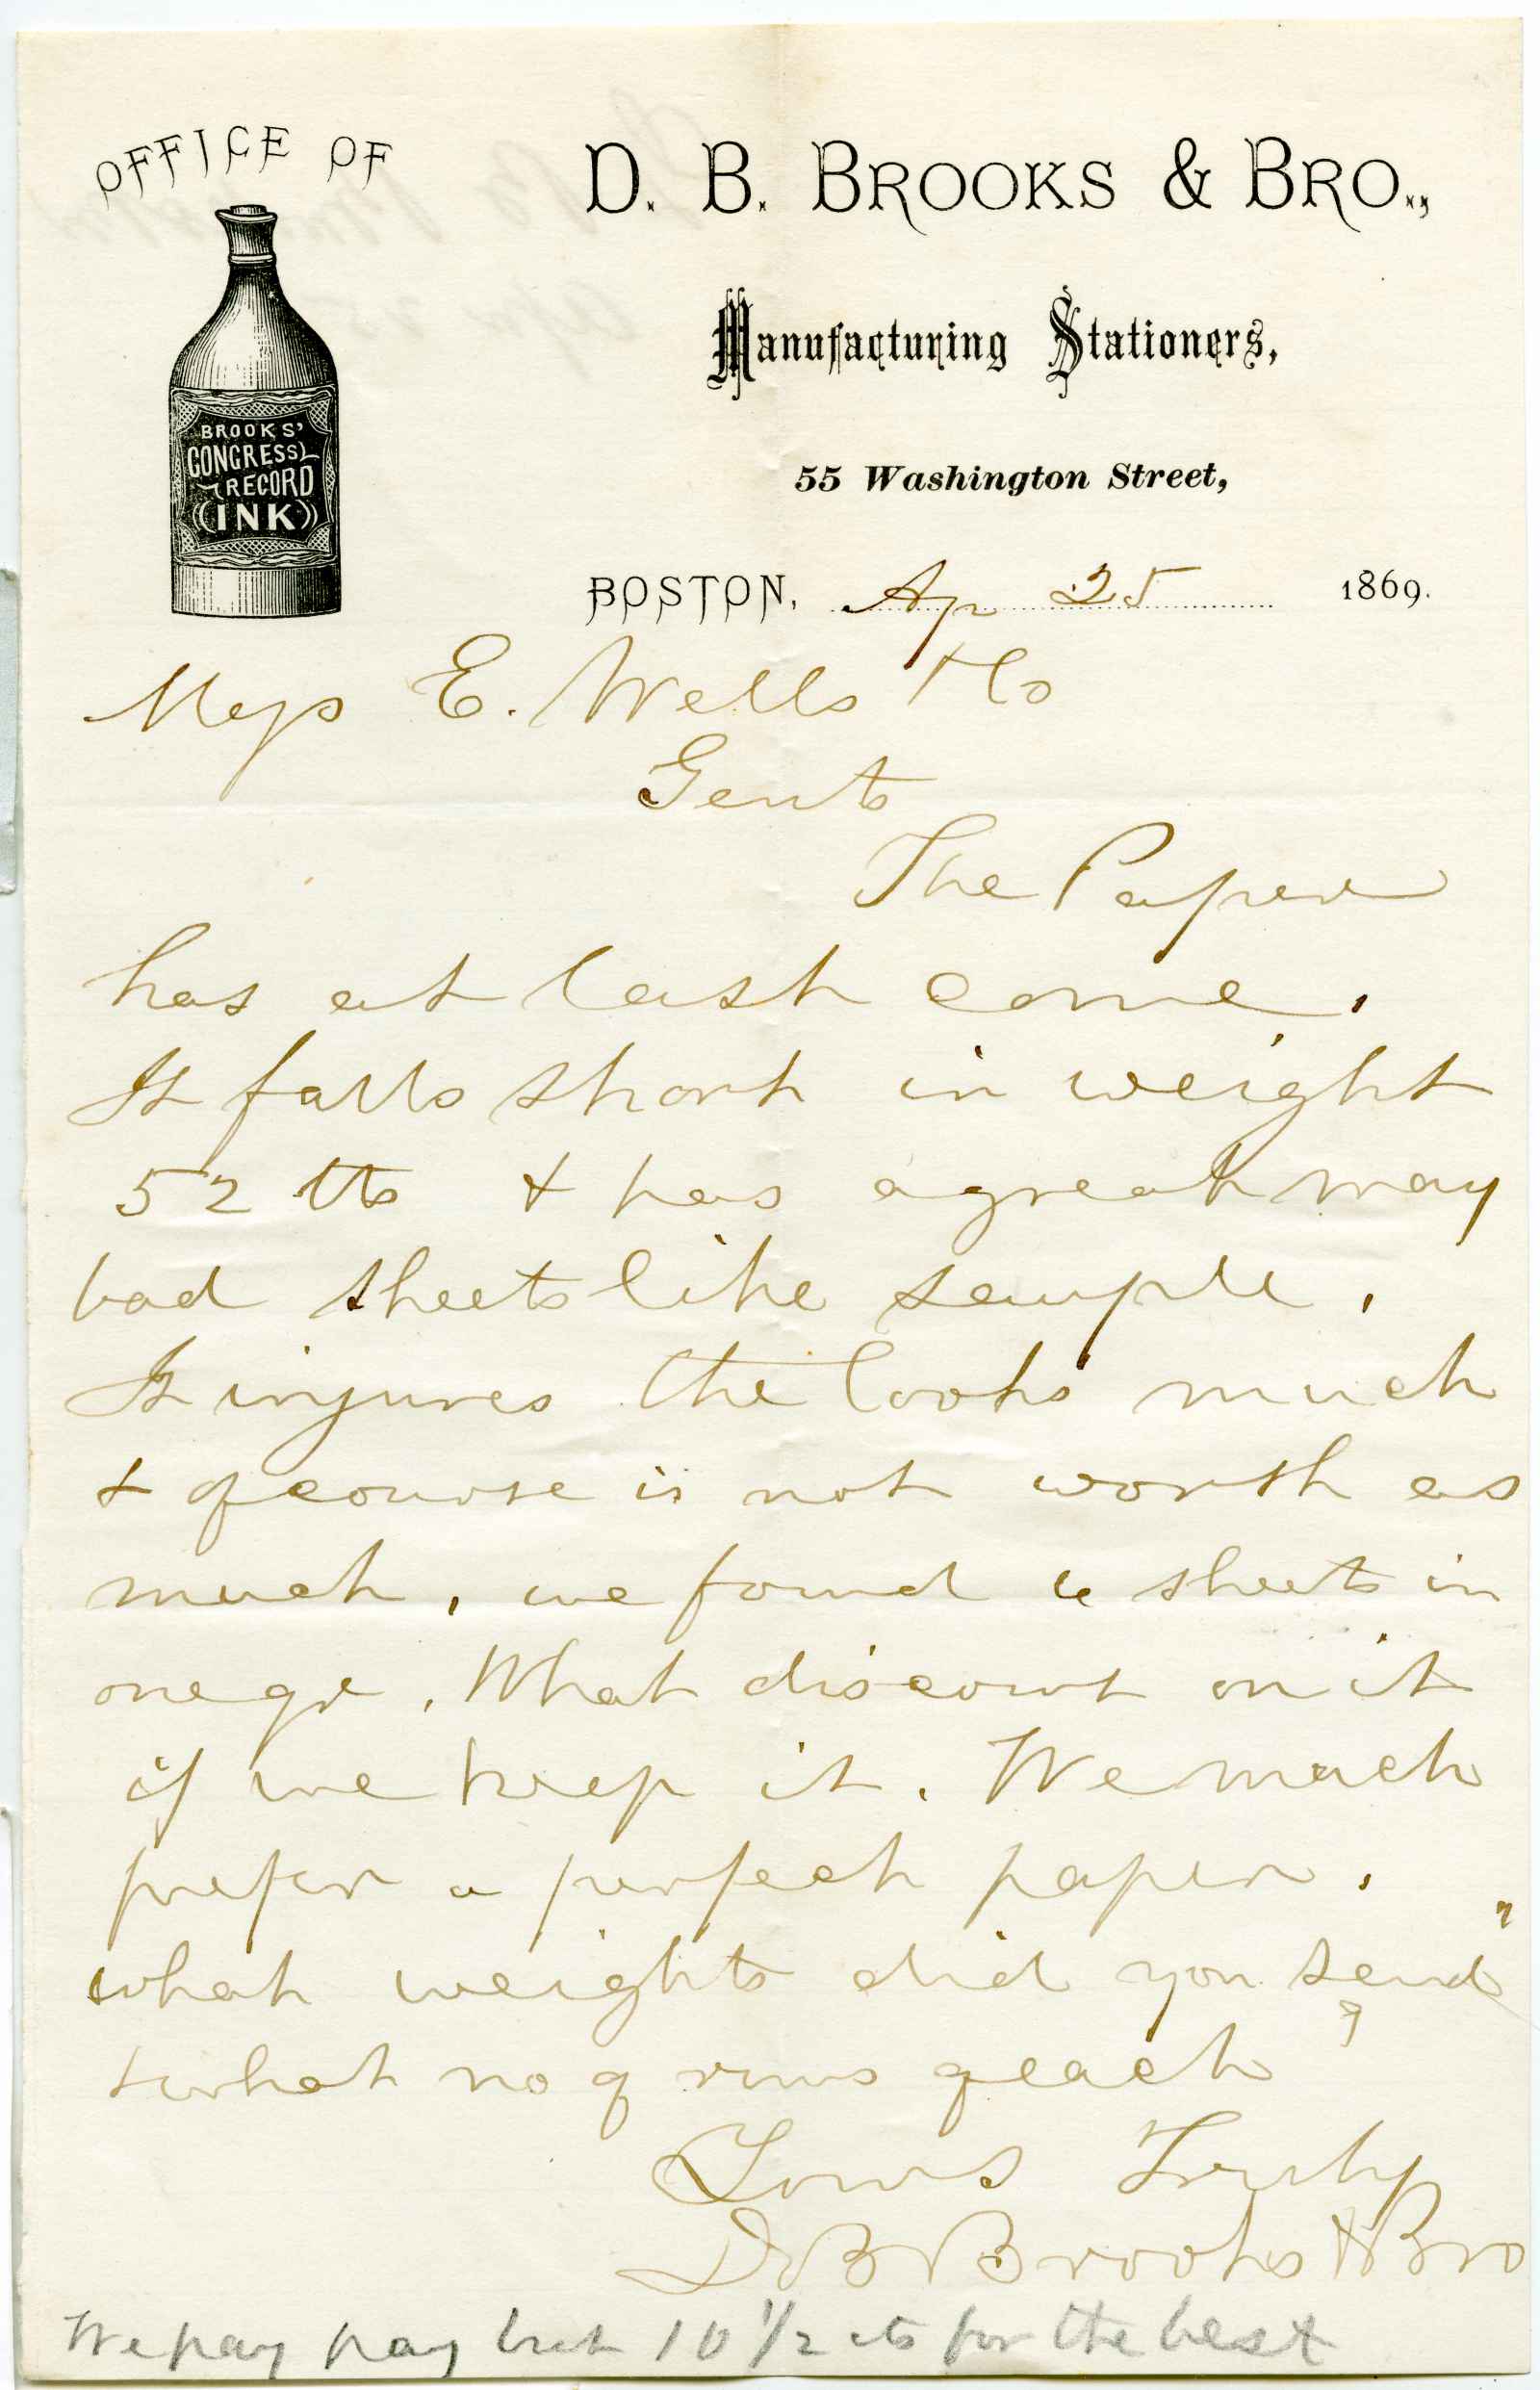 OFFICE OF
D. B. BROOKS & BRO.,
Manufacturing Stationers,
BROOKS'
CONGRESS
RECORD
INK
55 Washington Street,
BOSTON, Ap 25 1869.
E. Wells & Co
Gents
The Paper
has at last come.
It falls short in weight
52 lbs & has a great many
bad sheets like sample.
It injures the looks much
& of course is not worth as
much, we found 6 sheets in
one qr. What discount on it
if we keep it. We much
prefer a perfect paper.
What weights did you send
& what no of rms of each ?
Yours Truly
D B Brooks & Bro
We pay pay but 10 1/2 cts for the best